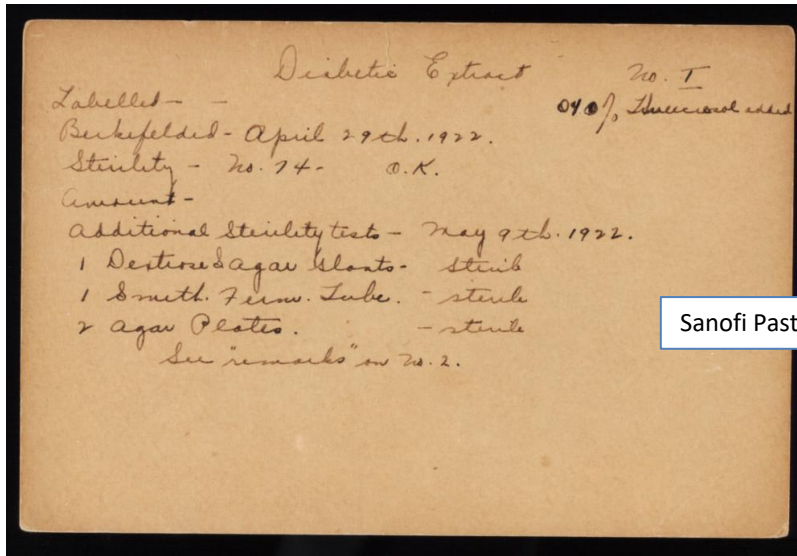 Diabetic Extract No. I
Labelled - -
040% Thueecresol added
Berkefelded - April 29th. 1922.
Sterility - No. 74 - O.K.
Amount -
Additional Sterility tests - May 9th. 1922.
1 Dextrose agar slants - sterile
1 Smith. Ferm. Tube. - sterile
2 Agar Plates. - sterile
See "remarks" on No. 2.
Sanofi Past